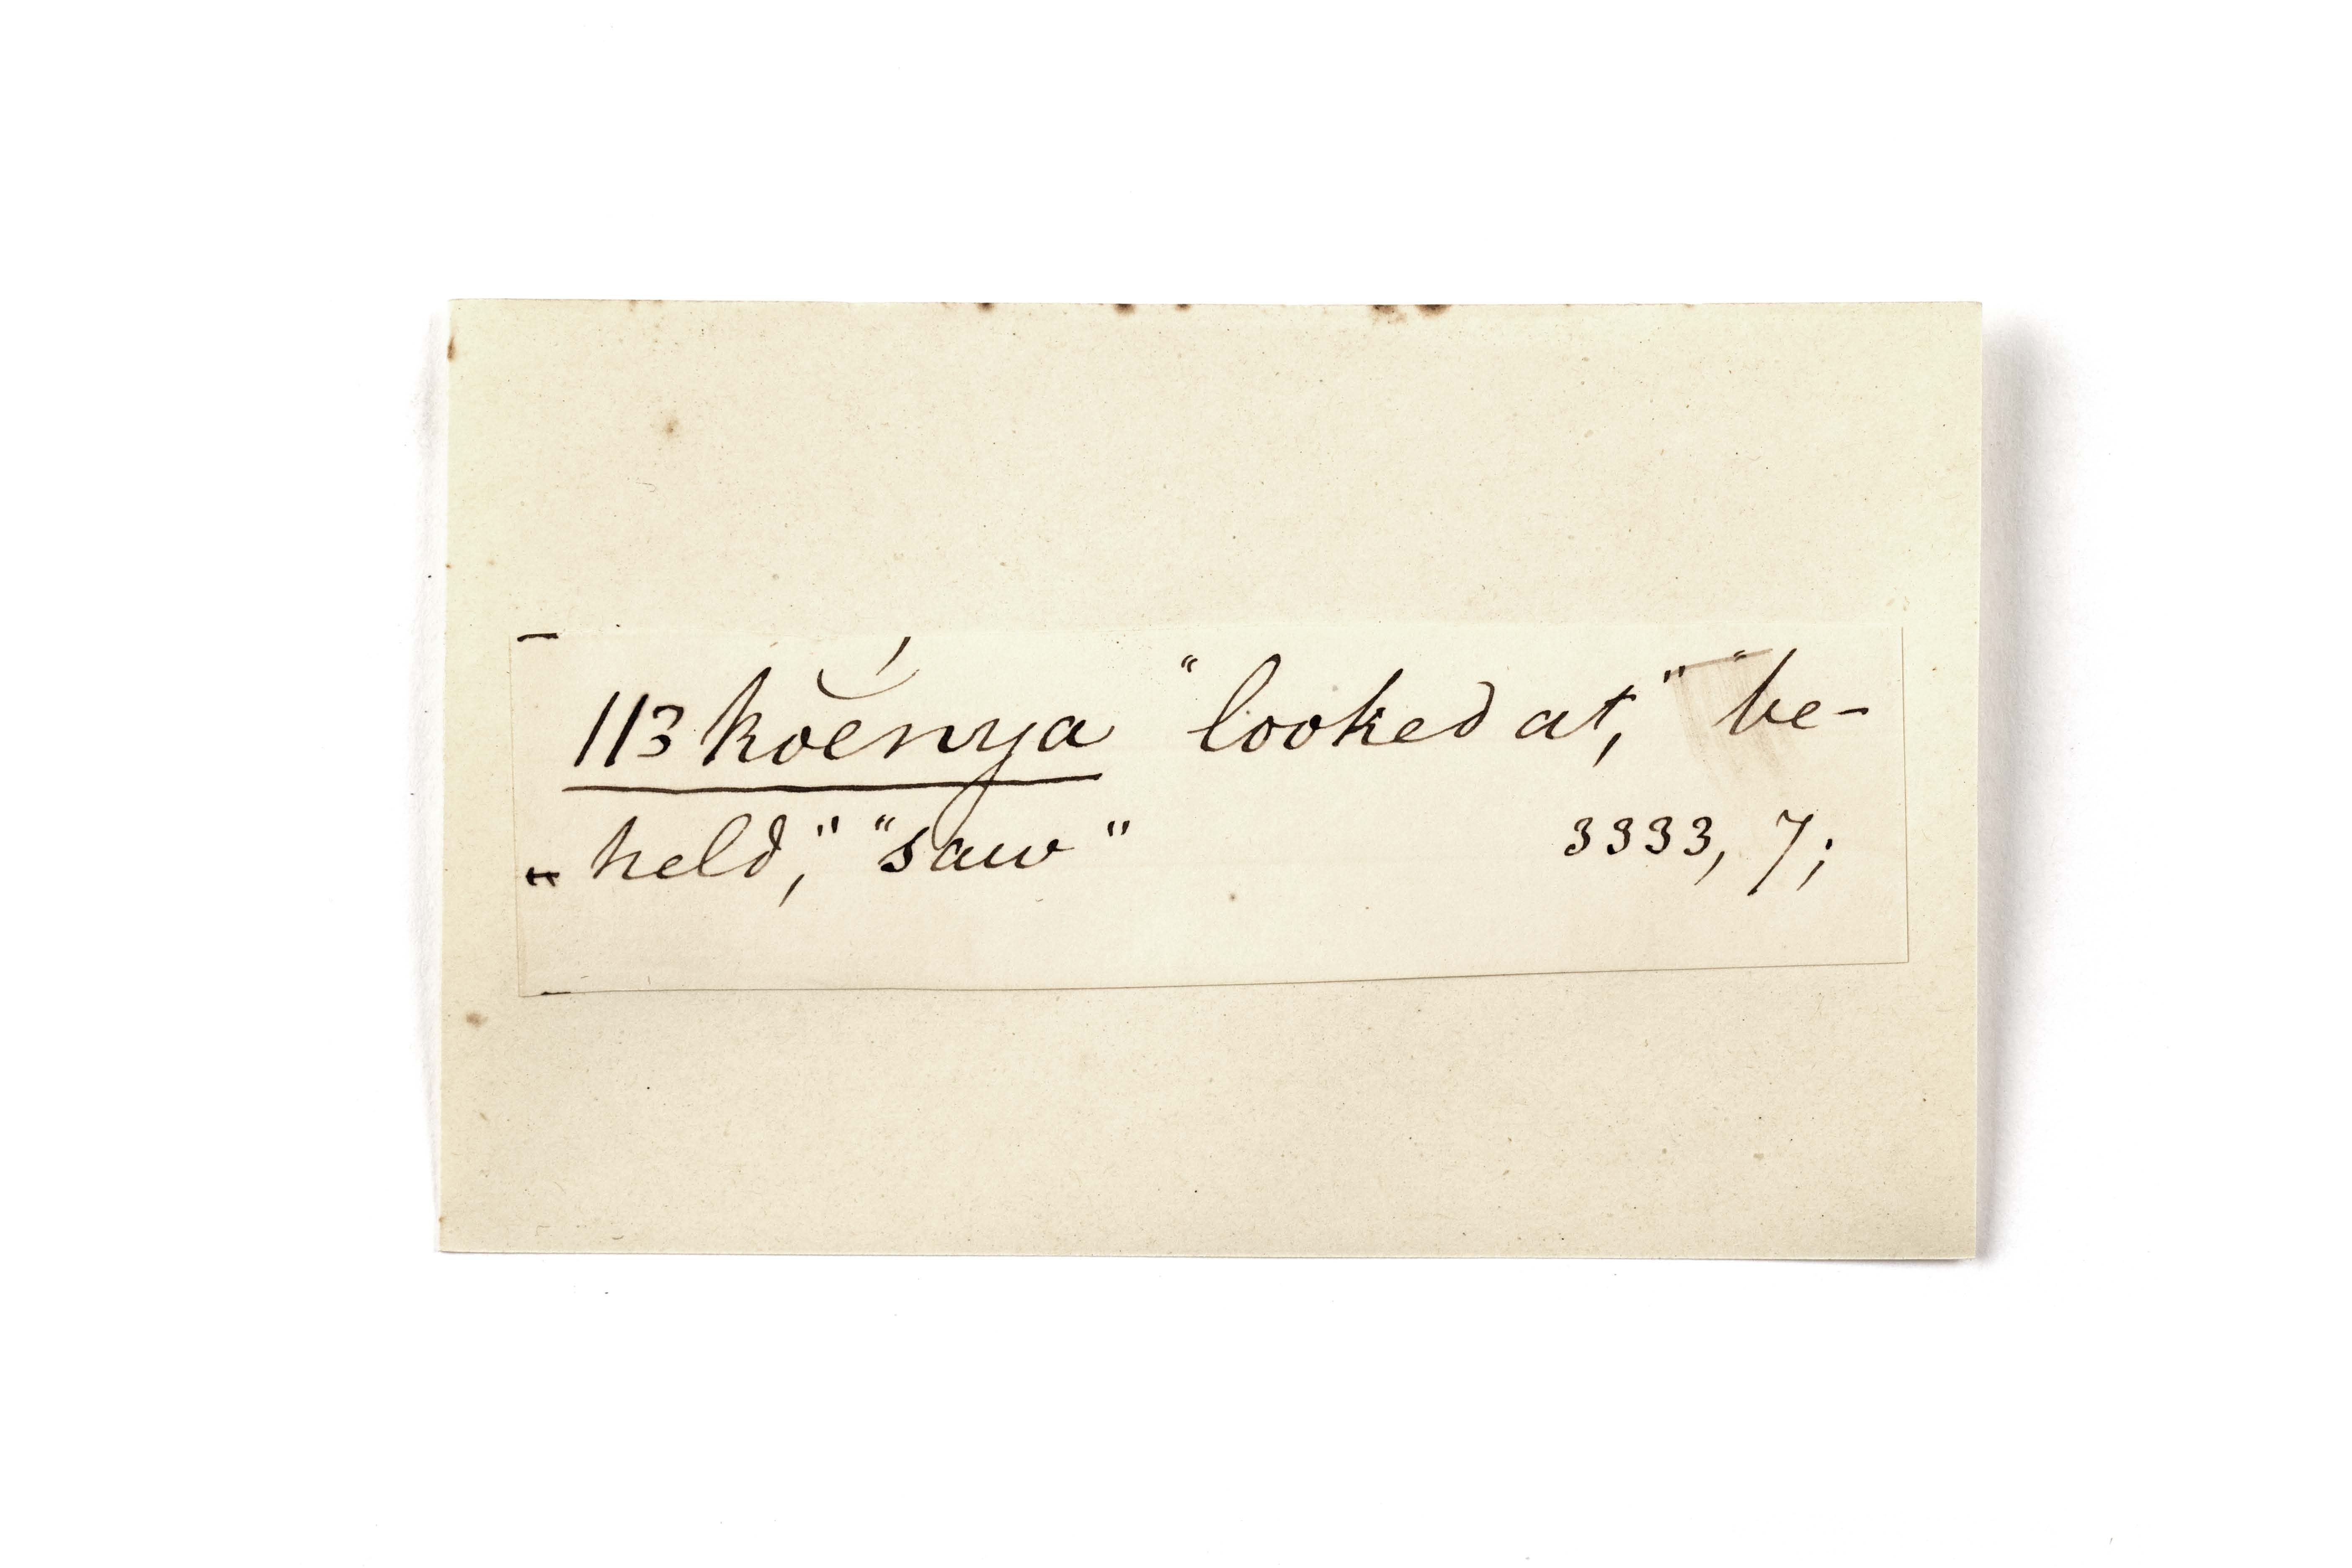 113 kŏénya "looked at," "be-
held," "saw" 3333, 7;